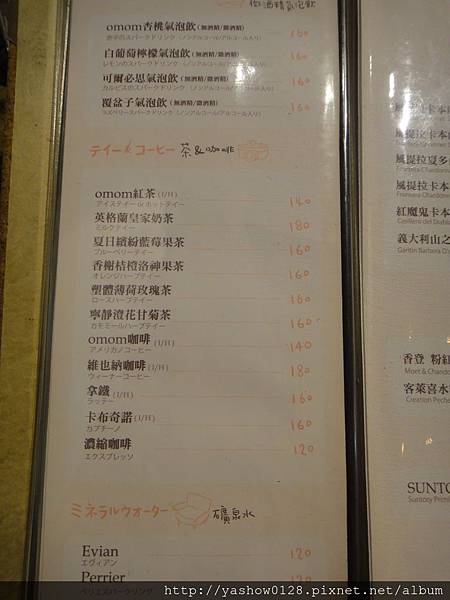 微酒精氣泡飲
omom杏桃氣泡飲 (無酒精/微酒精) 160
杏子のスパークドリンク (ノンアルコール/アルコール入り)
白葡萄檸檬氣泡飲 (無酒精/微酒精) 160
レモンのスパークドリンク (ノンアルコール/アルコール入り)
可爾必思氣泡飲 (無酒精/微酒精) 160
カルピスのスパークドリンク (ノンアルコール/アルコール入り)
覆盆子氣泡飲 (無酒精/微酒精) 160
ラズベリースパークドリンク (ノンアルコール/アルコール入り)
ティー & コーヒー 茶&咖啡
omom紅茶 (I/H) 140
アイスティー or ホットティー
英格蘭皇家奶茶 180
ミルクティー
夏日繽紛藍莓果茶 160
ブルーベリーティー
香榭桔橙洛神果茶 160
オレンジハーブティー
塑體薄荷玫瑰茶 160
ローズハーブティー
寧靜澄花甘菊茶 160
カモミールハーブティー
omom咖啡 (I/H) 140
アメリカノコーヒー
維也納咖啡 (I/H) 180
ウィーナーコーヒー
拿鐵 (I/H) 160
ラッテー
卡布奇諾 (I/H) 160
カプチーノ
濃縮咖啡 120
エクスプレッソ
ミネラルウォーター 礦泉水
Evian 120
エヴィアン
Perrier 120
ペリエスパークリング
風提拉卡本
風提拉卡本
風提拉夏多
Frontera Chardonn
風提拉卡本
紅魔鬼卡本
Casillero del Diablo
義大利山之
Garitin Barbera D'
香登 粉紅
Moet & Chando
客萊喜水
Creation Peche
SUNTO
Suntory Premi
http://yashow0128.pixnet.net/album